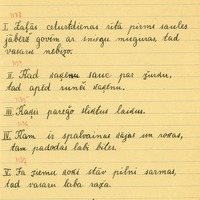 I. Zaļās ceturtdienas rītā pirms saules
jāberž govīm ar sniegu muguras tad
vasaru nebizo.
II. Kad kaķenu sauc par žurku,
tad apēd runči kaķenu.
III. Kaķis parejo sliktus laikus.
IV. Kam ir spalvainas kājas un rokas,
tam padodas labi bites.
V. Ja ziemu koki stāv pilni sarmas,
tad vasaru laba raža.